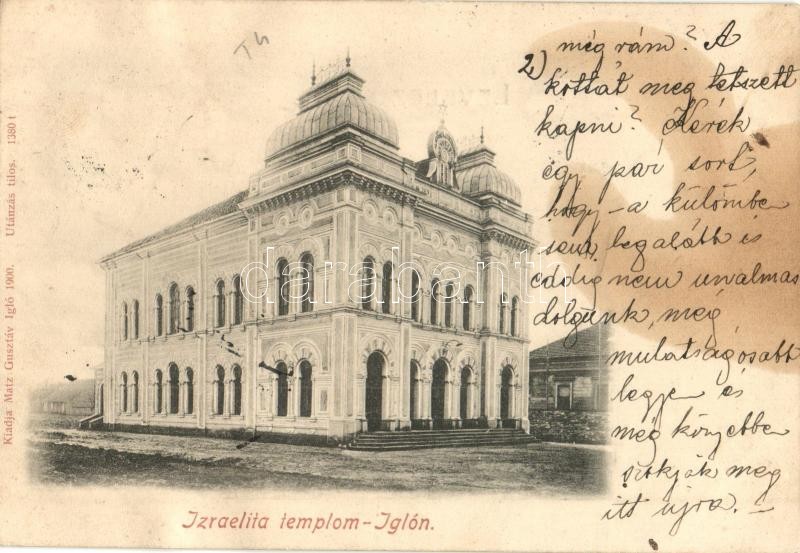 Th
2) még rám? A
kottát meg tetszett
kapni? Kérek
egy pár sort,
hogy a külömben
sem legalább is
eddig nem unalmas
dolgunk, még
mulatságosabb
legyen és
még könyebben
szokják meg
itt ujra. –
Kiadja Matz Gusztáv Igló 1900. Utánzás tilos. 1380 t
darabanth.com
Izraelita templom-Iglón.